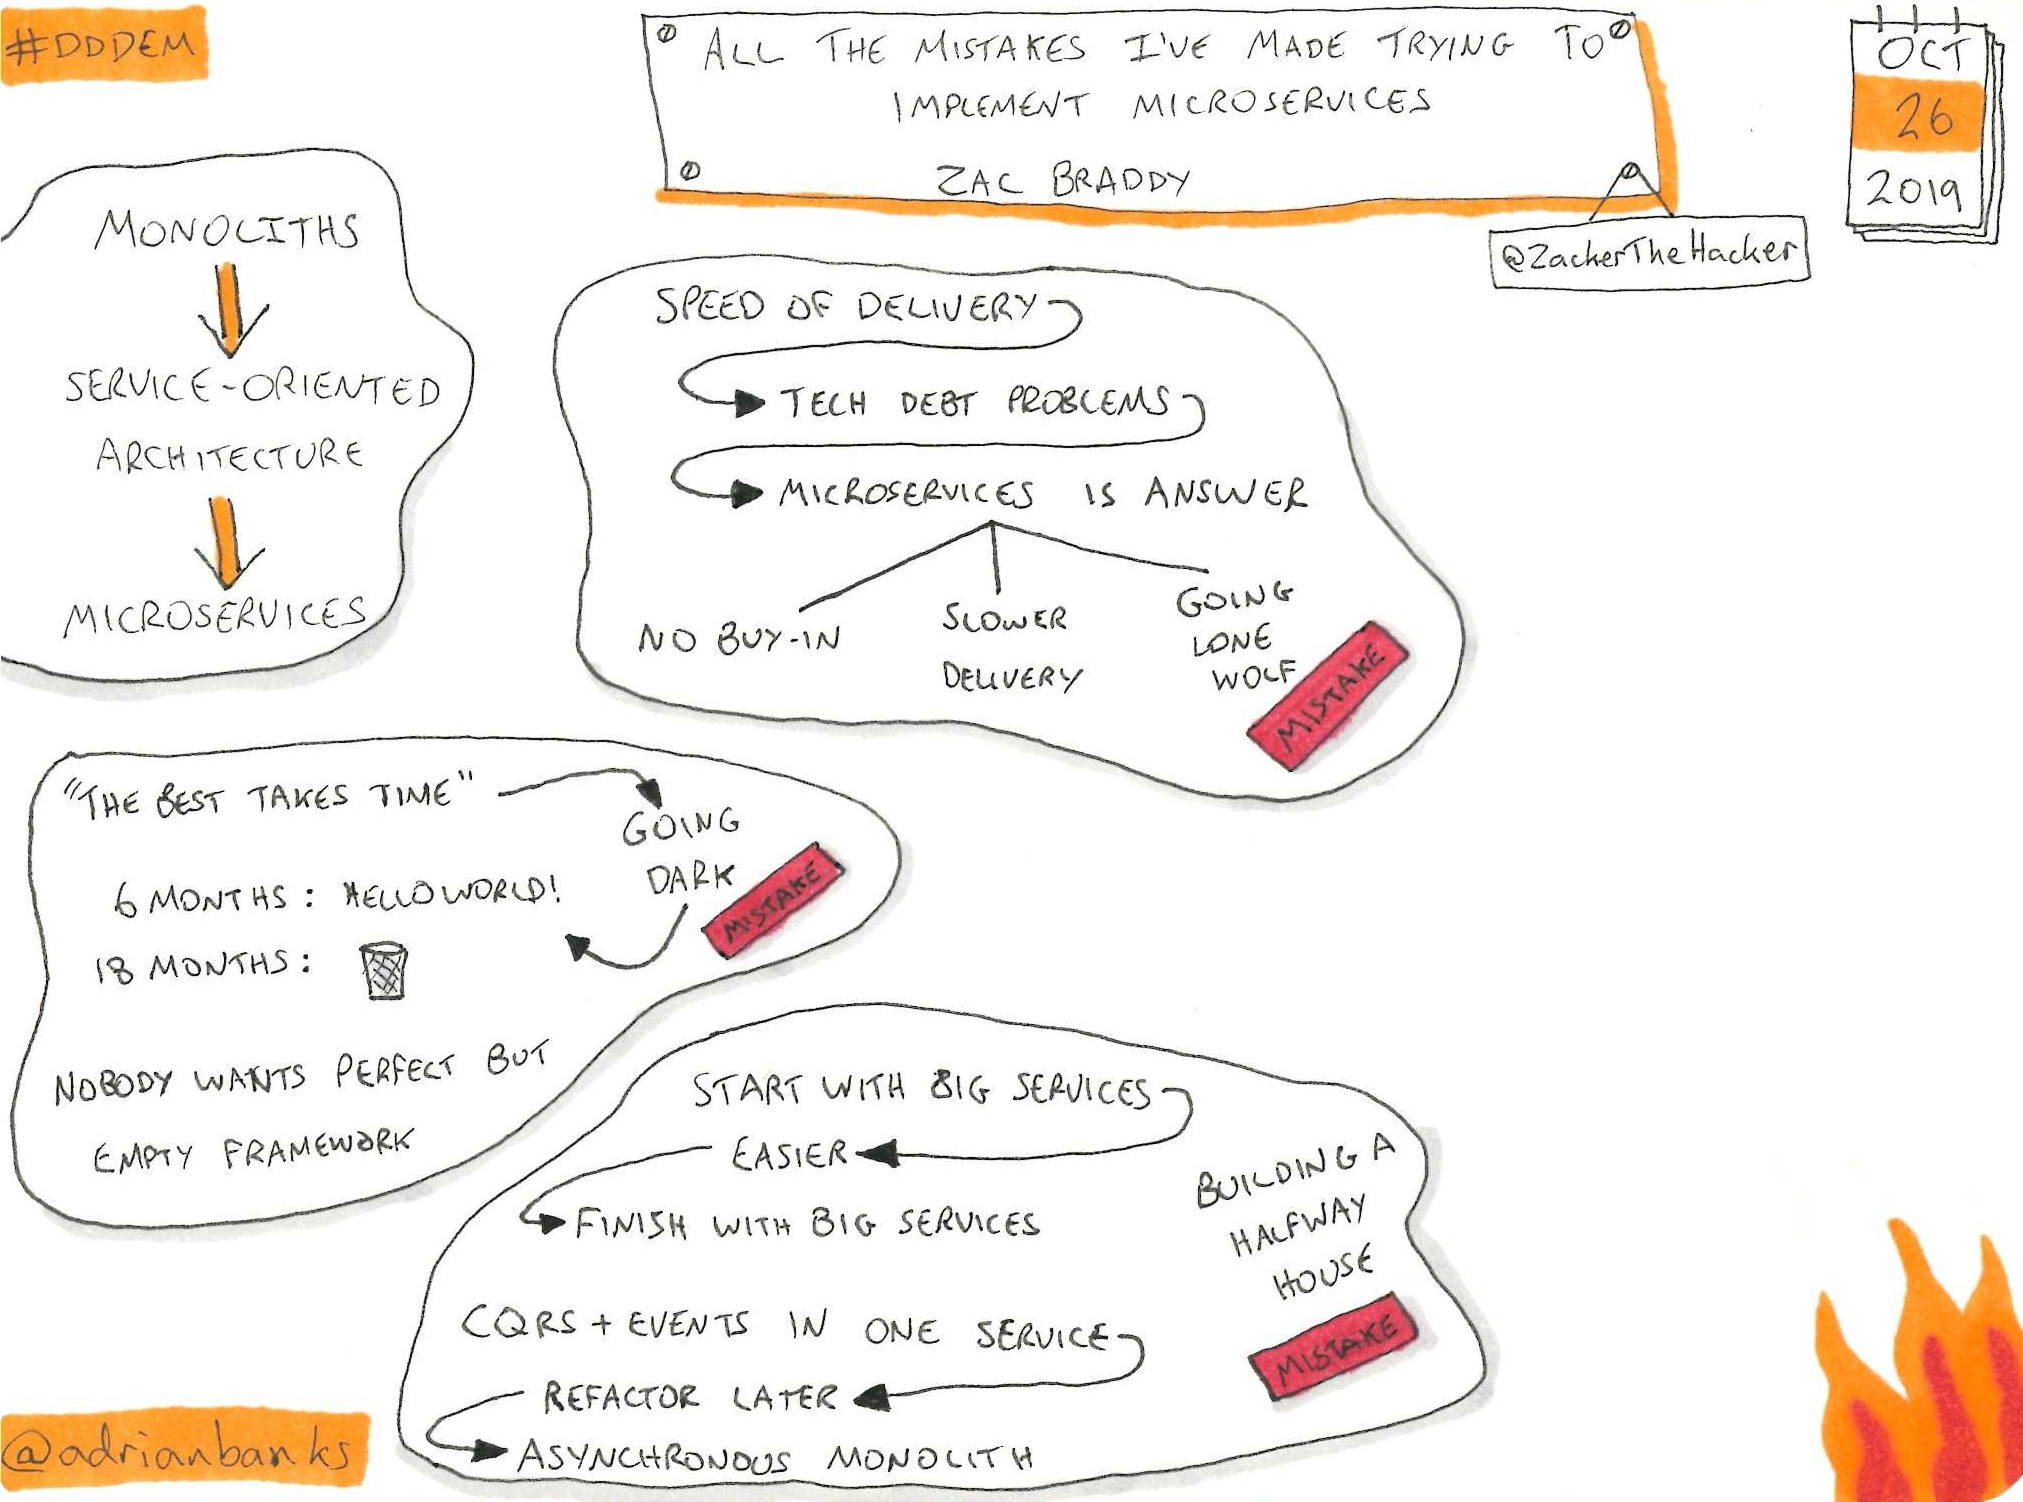 #DDDEM
ALL THE MISTAKES I'VE MADE TRYING TO
IMPLEMENT MICROSERVICES
ZAC BRADDY
@ZackerTheHacker
OCT
26
2019
MONOLITHS
SERVICE-ORIENTED
ARCHITECTURE
MICROSERVICES
SPEED OF DELIVERY
TECH DEBT PROBLEMS
MICROSERVICES IS ANSWER
NO BUY-IN
SLOWER
DELIVERY
GOING
LONE
WOLF
MISTAKE
"THE BEST TAKES TIME"
GOING
DARK
MISTAKE
6 MONTHS: HELLO WORLD!
18 MONTHS:
NOBODY WANTS PERFECT BUT
EMPTY FRAMEWORK
START WITH BIG SERVICES
EASIER
FINISH WITH BIG SERVICES
BUILDING A
HALFWAY
HOUSE
MISTAKE
CQRS + EVENTS IN ONE SERVICE
REFACTOR LATER
ASYNCHRONOUS MONOLITH
@adrianbanks